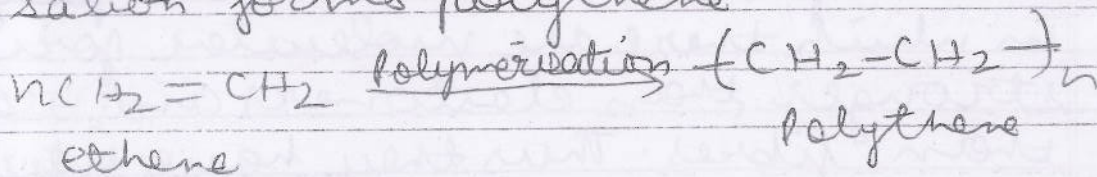 sation forms polythene
nCH2 = CH2 Polymerisation -(CH2-CH2-)n
ethene Polythene